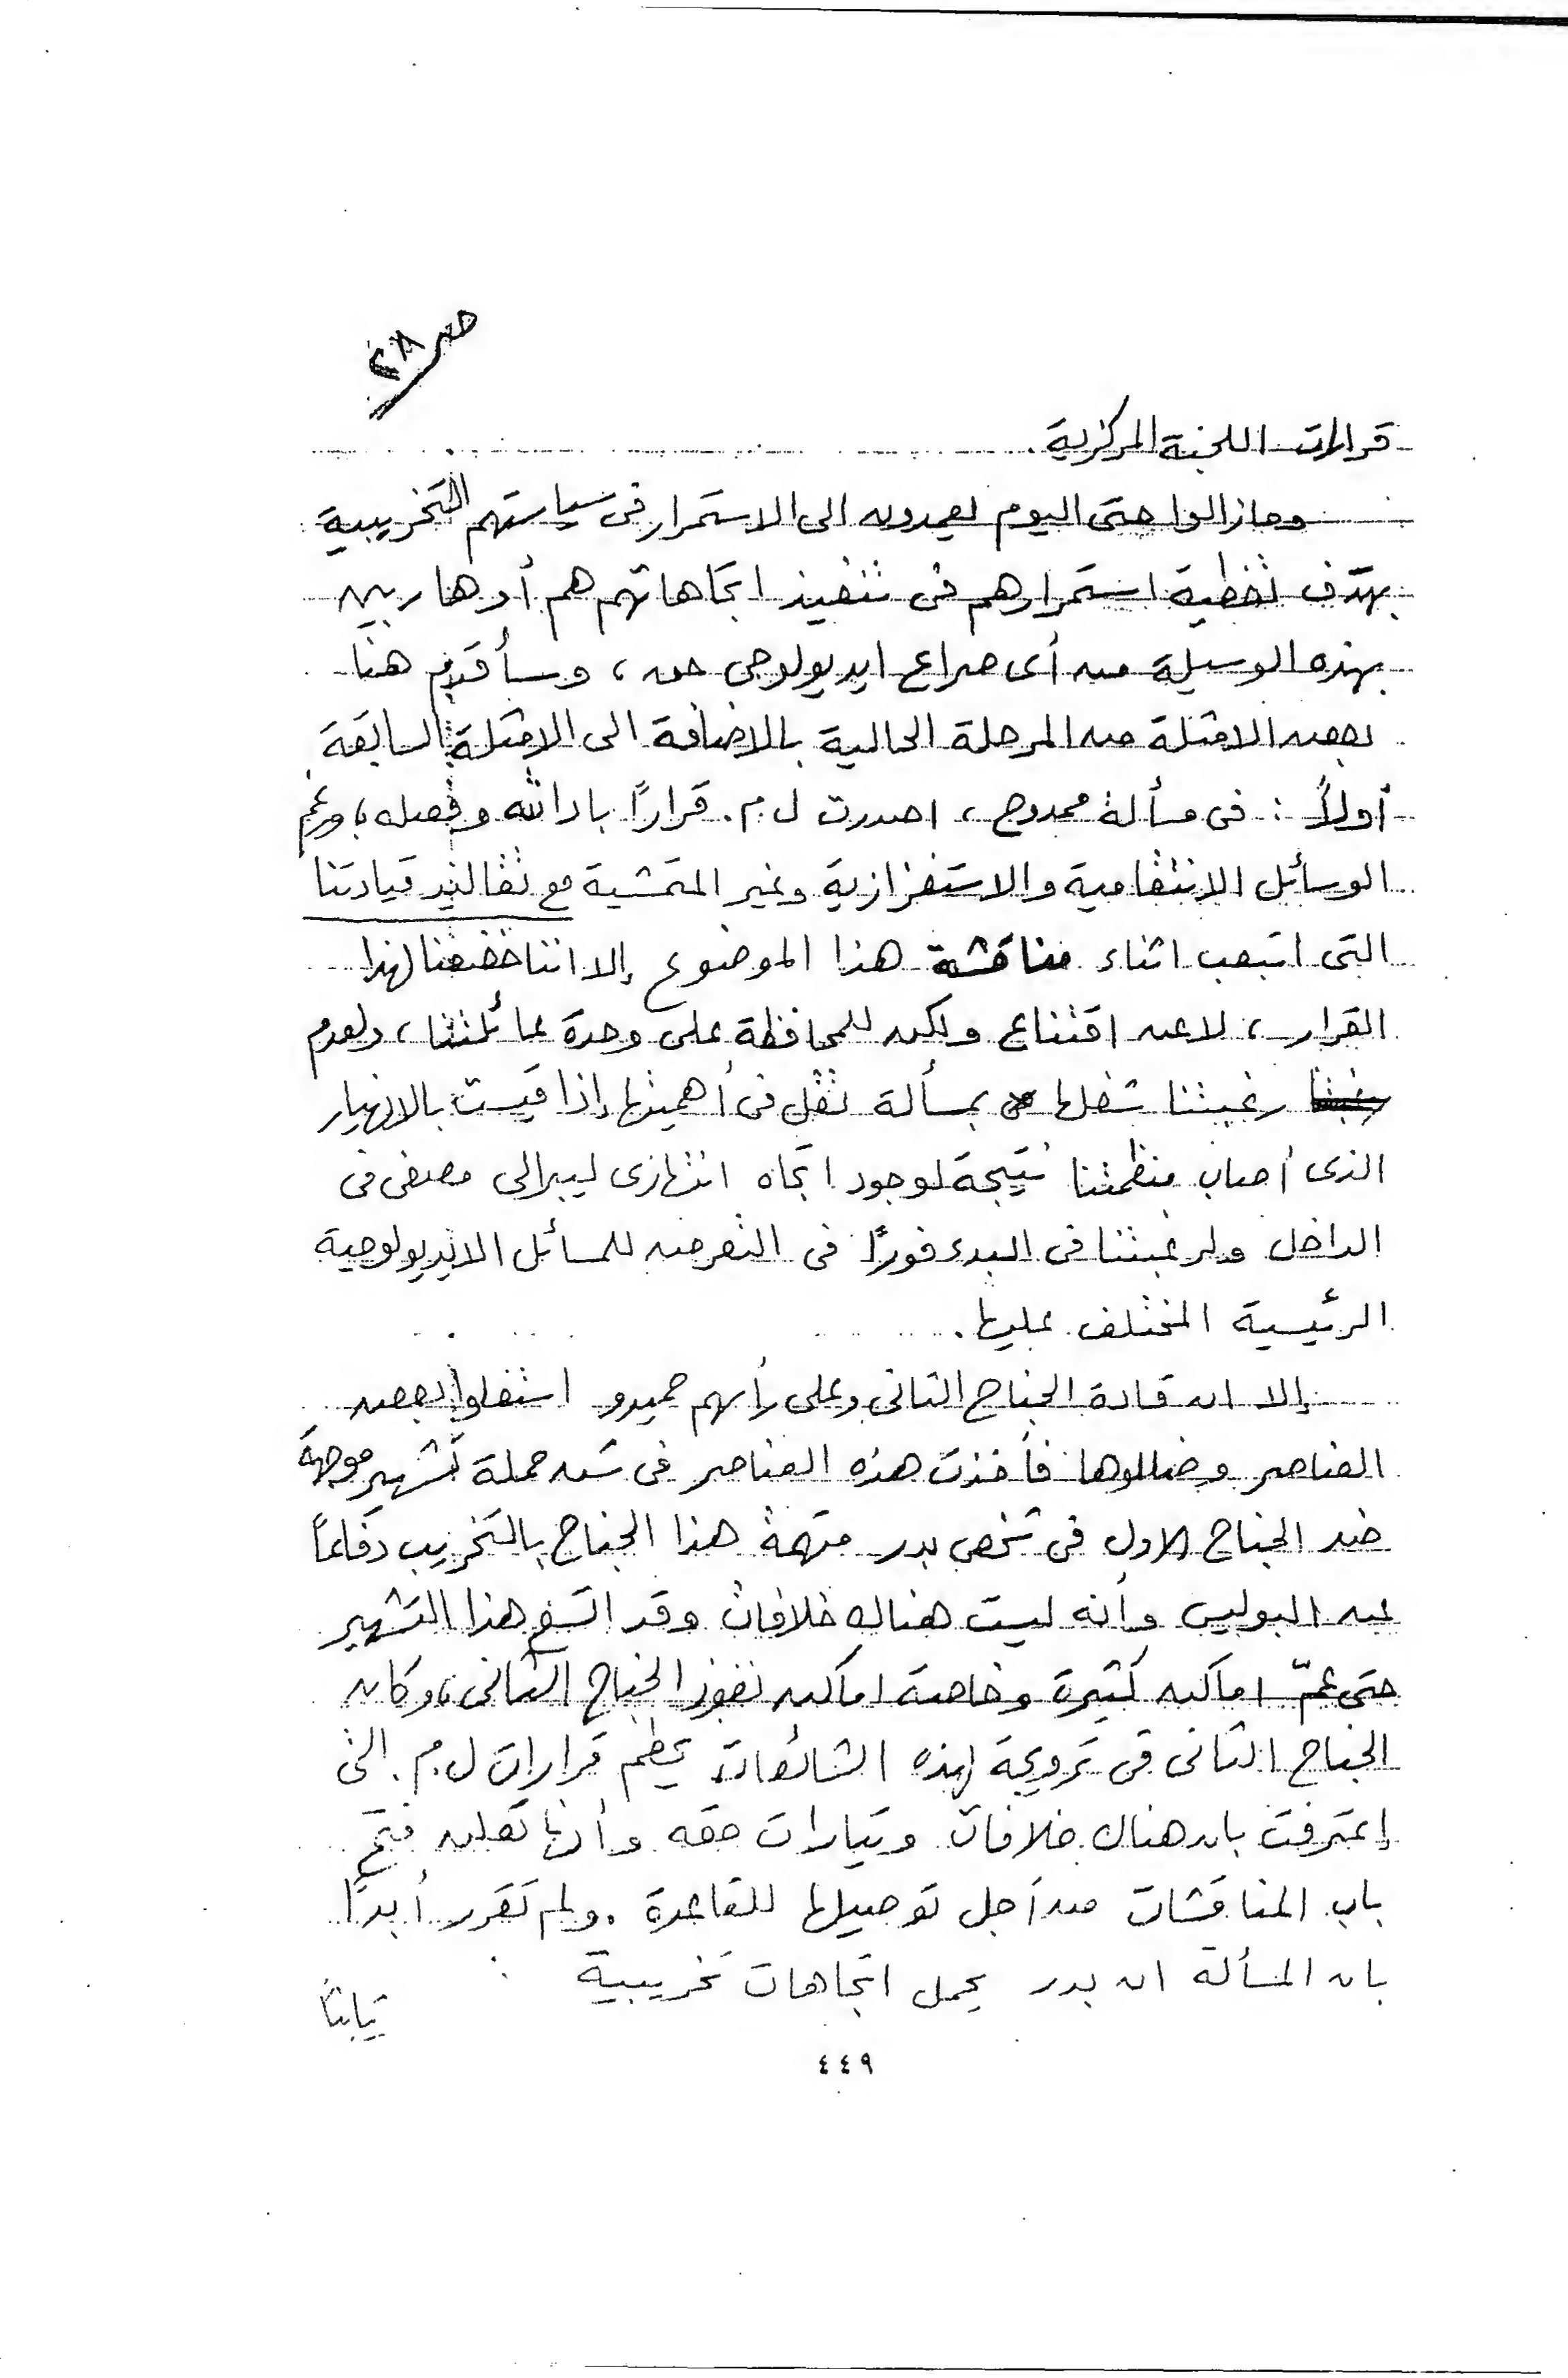 ص ٢٨
قرارات اللجنة المركزية.
ومازالوا حتى اليوم يعمدون الى الاستمرار فى سياستهم التخريبية
بهدف تغطية استمرارهم فى تنفيذ اتجاهاتهم هم أو هاربين
بهذه الوسيلة من أى صراع ايديولوجى حق، وسأقدم هنا
بعض الامثلة من المرحلة الحالية بالاضافة الى الامثلة السابقة
أولاً : فى مسألة ممدوح، اصدرت ل.م. قراراً بادانته وفصله، ورغم
الوسائل الانتقامية والاستفزازية وغير المتمشية مع تقاليد قيادتنا
التى اتبعب اثناء مناقشة هذا الموضوع إلا اننا خضعنا لهذا
القرار، لا عن اقتناع ولكن للمحافظة على وحدة عائلتنا، ولعدم
رغبتنا شغلها بمسألة تقل فى أهميتها إذا قيست بالانهيار
الذى أصاب منظمتنا نتيجة لوجود اتجاه انتهازى ليبرالى مصفى فى
الداخل ولرغبتنا فى البدء فوراً فى التعرض للمسائل الايديولوجية
الرئيسية المختلف عليها.
إلا ان قادة الجناح الثانى وعلى رأسهم حميدو استغلوا بعض
العناصر وضللوها فأخذت هذه العناصر فى شن حملة تشهير موجهة
ضد الجناح الاول فى شخص بدر متهمة هذا الجناح بالتخريب دفاعاً
عن البوليس وأنه ليست هناك خلافات وقد اتسع هذا التشهير
حتى عمّ اماكن كثيرة وخاصة اماكن نفوذ الجناح الثانى، وكان
الجناح الثانى فى ترويجة لهذه الشائعات يحطم قرارات ل.م. التى
إعترفت بان هناك خلافات وتيارات حقه وأنها تعلن فتح
باب المناقشات من أجل توصيلها للقاعدة. ولم تقرر أبداً
بان المسألة ان بدر يحمل اتجاهات تخريبية
٤٤٩